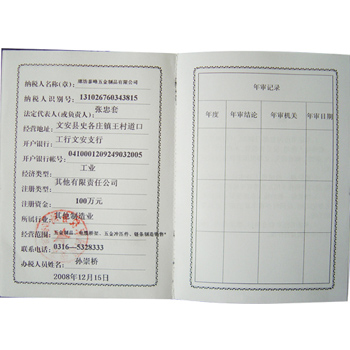 纳税人名称(章): 廊坊嘉峰五金制品有限公司
纳税人识别号: 131026760343815
法定代表人(或负责人): 张忠套
经营地址: 文安县史各庄镇王村道口
开户银行: 工行文安支行
开户银行帐号: 0410001209249032005
经济类型: 工业
注册类型: 其他有限责任公司
注册资金: 100万元
所属行业: 其他制造业
经营范围: 五金制品、电缆桥架、五金冲压件、链条制造销售*
联系电话: 0316-5328333
办税人员姓名: 孙崇桥
2008年12月15日
年审记录
年度 年审结论 年审机关 年审日期